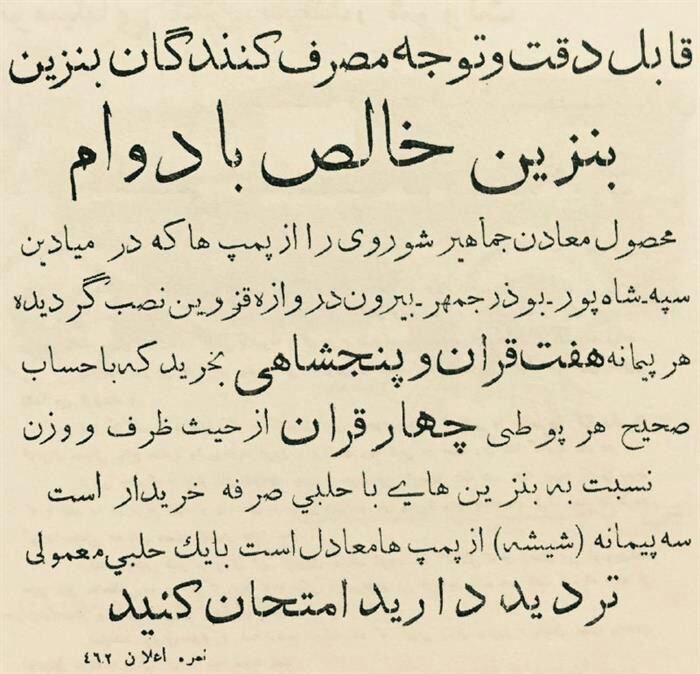 قابل دقت و توجه مصرف کنندگان بنزین
بنزین خالص بادوام
محصول معادن جماهیر شوروی را از پمپ ها که در میادین
سپه ـ شاه پور ـ بوذرجمهر ـ بیرون دروازه قزوین نصب گردیده
هر پیمانه هفت قران و پنجشاهی بخرید که با حساب
صحیح هر پوطی چهار قران از حیث ظرف و وزن
نسبت به بنزین هایی با حلبی صرفه خریدار است
سه پیمانه (شیشه) از پمپ ها معادل است با یك حلبی معمولی
تردید دارید امتحان کنید
نمره اعلان ٤٦٢